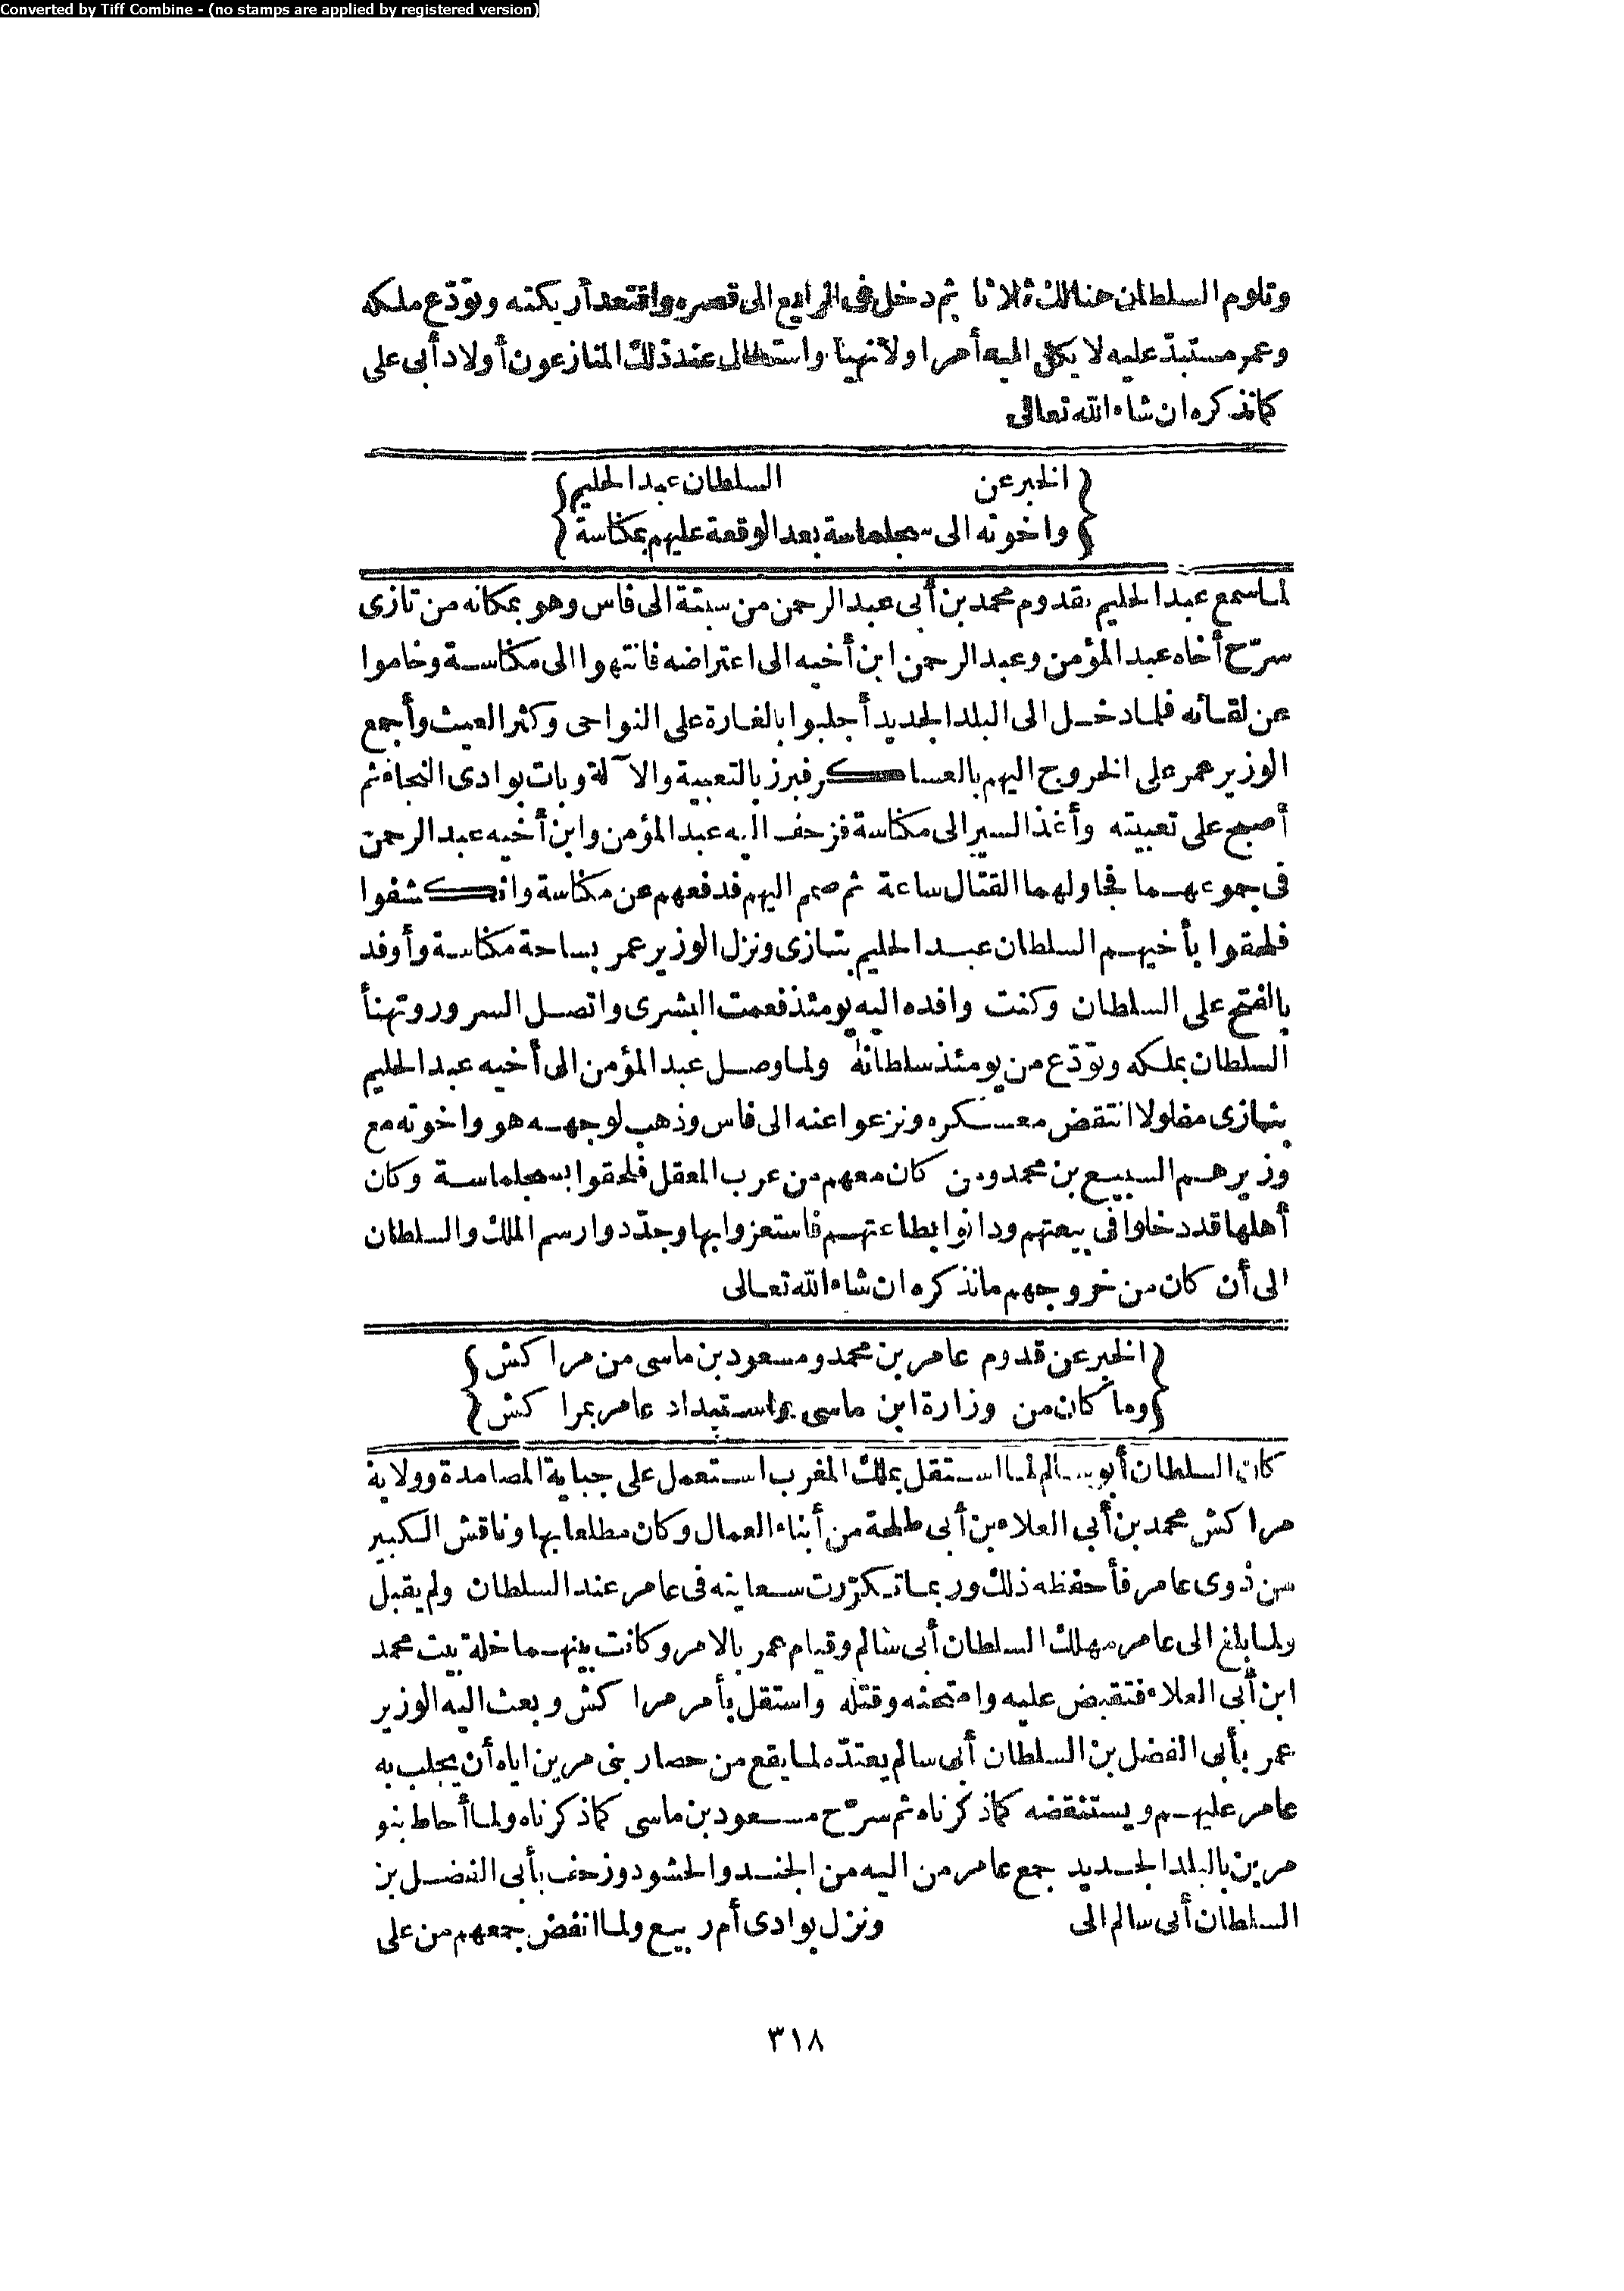 Converted by Tiff Combine - (no stamps are applied by registered version)
وتلوم السلطان هنالك ثلاثا ثم دخل في الرابع الى قصره واقتعد أريكته وتودّع ملكه
وعمر مستبدّ عليه لا يكل اليه أمرا ولا نهيا واستطال عند ذلك المنازعون أولاد أبى على
كمانذكره ان شاء الله تعالى
{ الخبر عن السلطان عبد الحليم }
{ واخوته الى سجلماسة بعد الوقعة عليهم بمكناسة }
لما سمع عبد الحليم بقدوم محمد بن أبى عبد الرحمن من سبتة الى فاس وهو بمكانه من تازى
سرّح أخاه عبد المؤمن وعبد الرحمن ابن أخيه الى اعتراضه فانتهوا الى مكناسة وخاموا
عن لقائه فلما دخل الى البلد الجديد أجلبوا بالغارة على النواحى وكثر العيث وأجمع
الوزير عمر على الخروج اليهم بالعساكر فبرز بالتعبية والآلة وبات بوادى النجاة ثم
أصبح على تعبيته وأغذ السير الى مكناسة فزحف اليه عبد المؤمن وابن أخيه عبد الرحمن
فى جموعهما فجاولهما القتال ساعة ثم صمم اليهم فدفعهم عن مكناسة وانكشفوا
فلحقوا بأخيهم السلطان عبد الحليم بتازى ونزل الوزير عمر بساحة مكناسة وأوفد
بالفتح على السلطان وكنت وافده اليه يومئذ فعمت البشرى واتصل السرور وتهنأ
السلطان بملكه وتودّع من يومئذ سلطانه ولما وصل عبد المؤمن الى أخيه عبد الحليم
بتازى مفلولا انتقض معسكره ونزعوا عنه الى فاس وذهب لوجهه هو واخوته مع
وزيرهم السبيع بن محمد ومن كان معهم من عرب المعقل فلحقوا بسجلماسة وكان
أهلها قد دخلوا فى بيعتهم ودانوا بطاعتهم فاستعزوا بها وجدّدوا رسم الملك والسلطان
الى أن كان من خروجهم مانذكره ان شاء الله تعالى
{ الخبر عن قدوم عامر بن محمد ومسعود بن ماسى من مراكش }
{ وما كان من وزارة ابن ماسى واستبداد عامر بمراكش }
كان السلطان أبو سالم لما استقل بملك المغرب استعمل على جباية المصامدة وولاية
مراكش محمد بن أبى العلاء بن أبى طلحة من أبناء العمال وكان مطلعا بها وناقش الكبير
من ذوى عامر فأحفظه ذلك وربما تكرّرت سعايته فى عامر عند السلطان ولم يقبل
ولما بلغ الى عامر مهلك السلطان أبى سالم وقيام عمر بالامر وكانت بينهما خلة بيت محمد
ابن أبى العلاء فتقبض عليه وامتحنه وقتله واستقل بأمر مراكش وبعث اليه الوزير
عمر بأبى الفضل بن السلطان أبى سالم يعتدّه لما يقع من حصار بنى مرين اياه أن يجلب به
عامر عليهم ويستنقضه كماذكرناه ثم سرّح مسعود بن ماسى كماذكرناه ولما أحاط بنو
مرين بالبلد الجديد جمع عامر من اليه من الجند والحشود وزحف بأبى الفضل بن
السلطان أبى سالم الى ونزل بوادى أم ربيع ولما انفض جمعهم من على
٣١٨